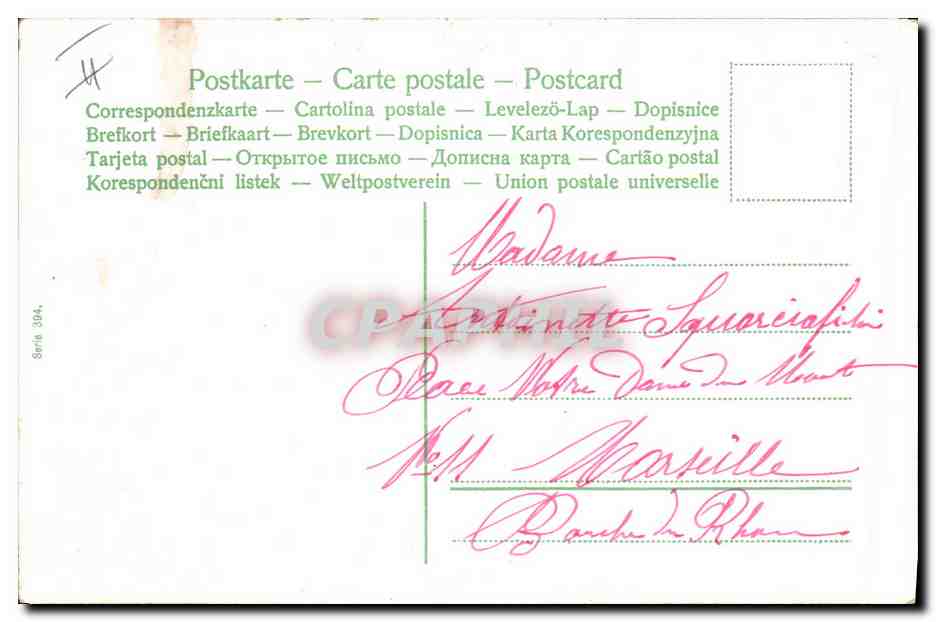 Postkarte – Carte postale – Postcard
Correspondenzkarte — Cartolina postale — Levelező-Lap — Dopisnice
Brefkort — Briefkaart — Brevkort — Dopisnica — Karta Korespondenzyjna
Tarjeta postal — Открытое письмо — Дописна карта — Cartão postal
Korespondenčni listek — Weltpostverein — Union postale universelle
Serie 394.
Madame
Antoinette Squarciafichi
Place Notre Dame du Mont
No 11 Marseille
Bouches du Rhone
CPARAMA